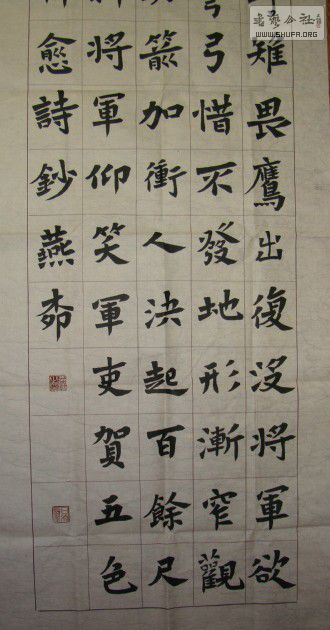 雉畏鷹出復没將軍欲
弓惜不發地形漸窄觀
箭加衝人決起百餘尺
將軍仰笑軍吏賀五色
愈詩鈔燕
書藝公社
WWW.SHUFA.ORG